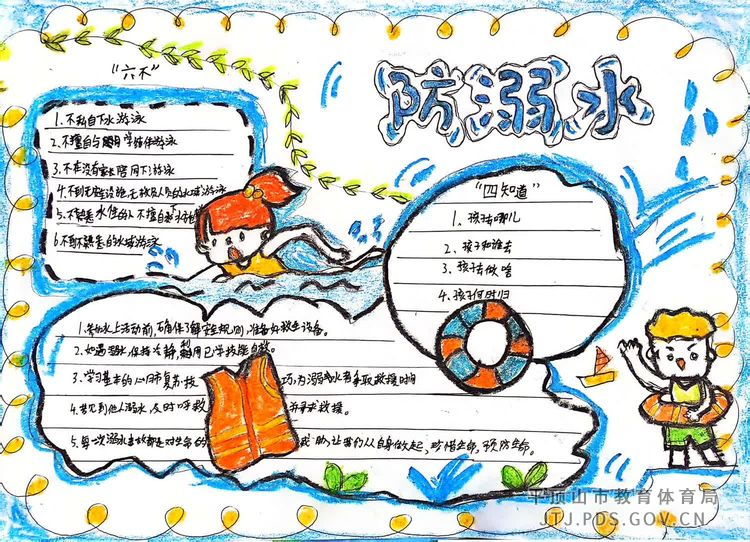 防溺水
"六不"
1.不私自下水游泳
2.不擅自与 学结伴游泳
3.不在没有 陪同下游泳
4.不到无 设施,无救 人员的水域游泳
5.不 水性的人不擅自
6.不到不熟悉的水域游泳
"四知道"
1、孩子去哪儿
2、孩子和谁去
3、孩子去做啥
4、孩子何时归
1. 水上活动前,确保了解安全规则,准备好救生设备。
2.如遇溺水,保持冷静,利用已学技能自救。
3.学习基本的心肺复苏技巧,为溺水者争取救援时间
4.若见到他人溺水,及时呼救并寻求救援。
5.每一次溺水事故都是对生命的 ,让我们从自身做起,珍惜生命,预防
平顶山市教育体育局
JTJ.PDS.GOV.CN